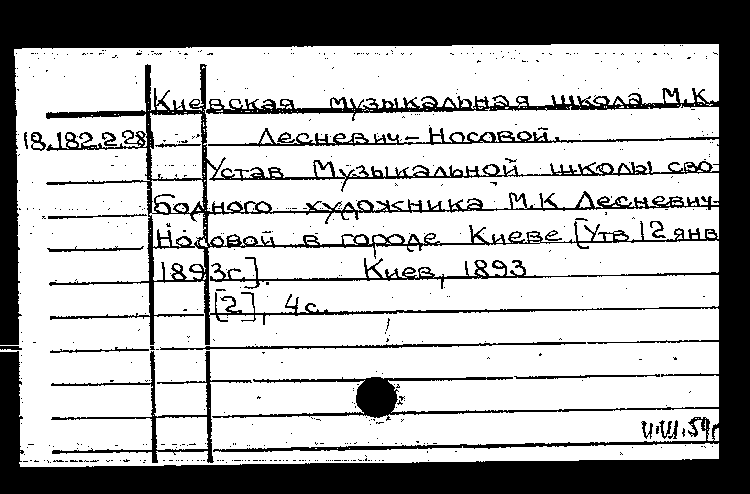 Киевская музыкальная школа М.К.
18.182.2.28 Лесневич-Носовой.
Устав Музыкальной школы сво-
бодного художника М.К. Лесневич-
Носовой в городе Киеве. [Утв. 12 янв
1893г.]. Киев, 1893
[2], 4с.